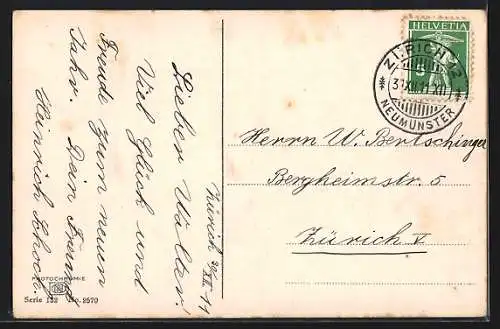 Zürich 30/XII 11
Lieber Walter!
Viel Glück und
Freude zum neuen
Jahr. Dein Freund
Heinrich Schoch.
PHOTOCHROMIE
Serie 132 No. 2570
HELVETIA
5
ZÜRICH 12
XII.11.XII
NEUMÜNSTER
Herrn W. Bertschinger
Bergheimstr. 5
Zürich V